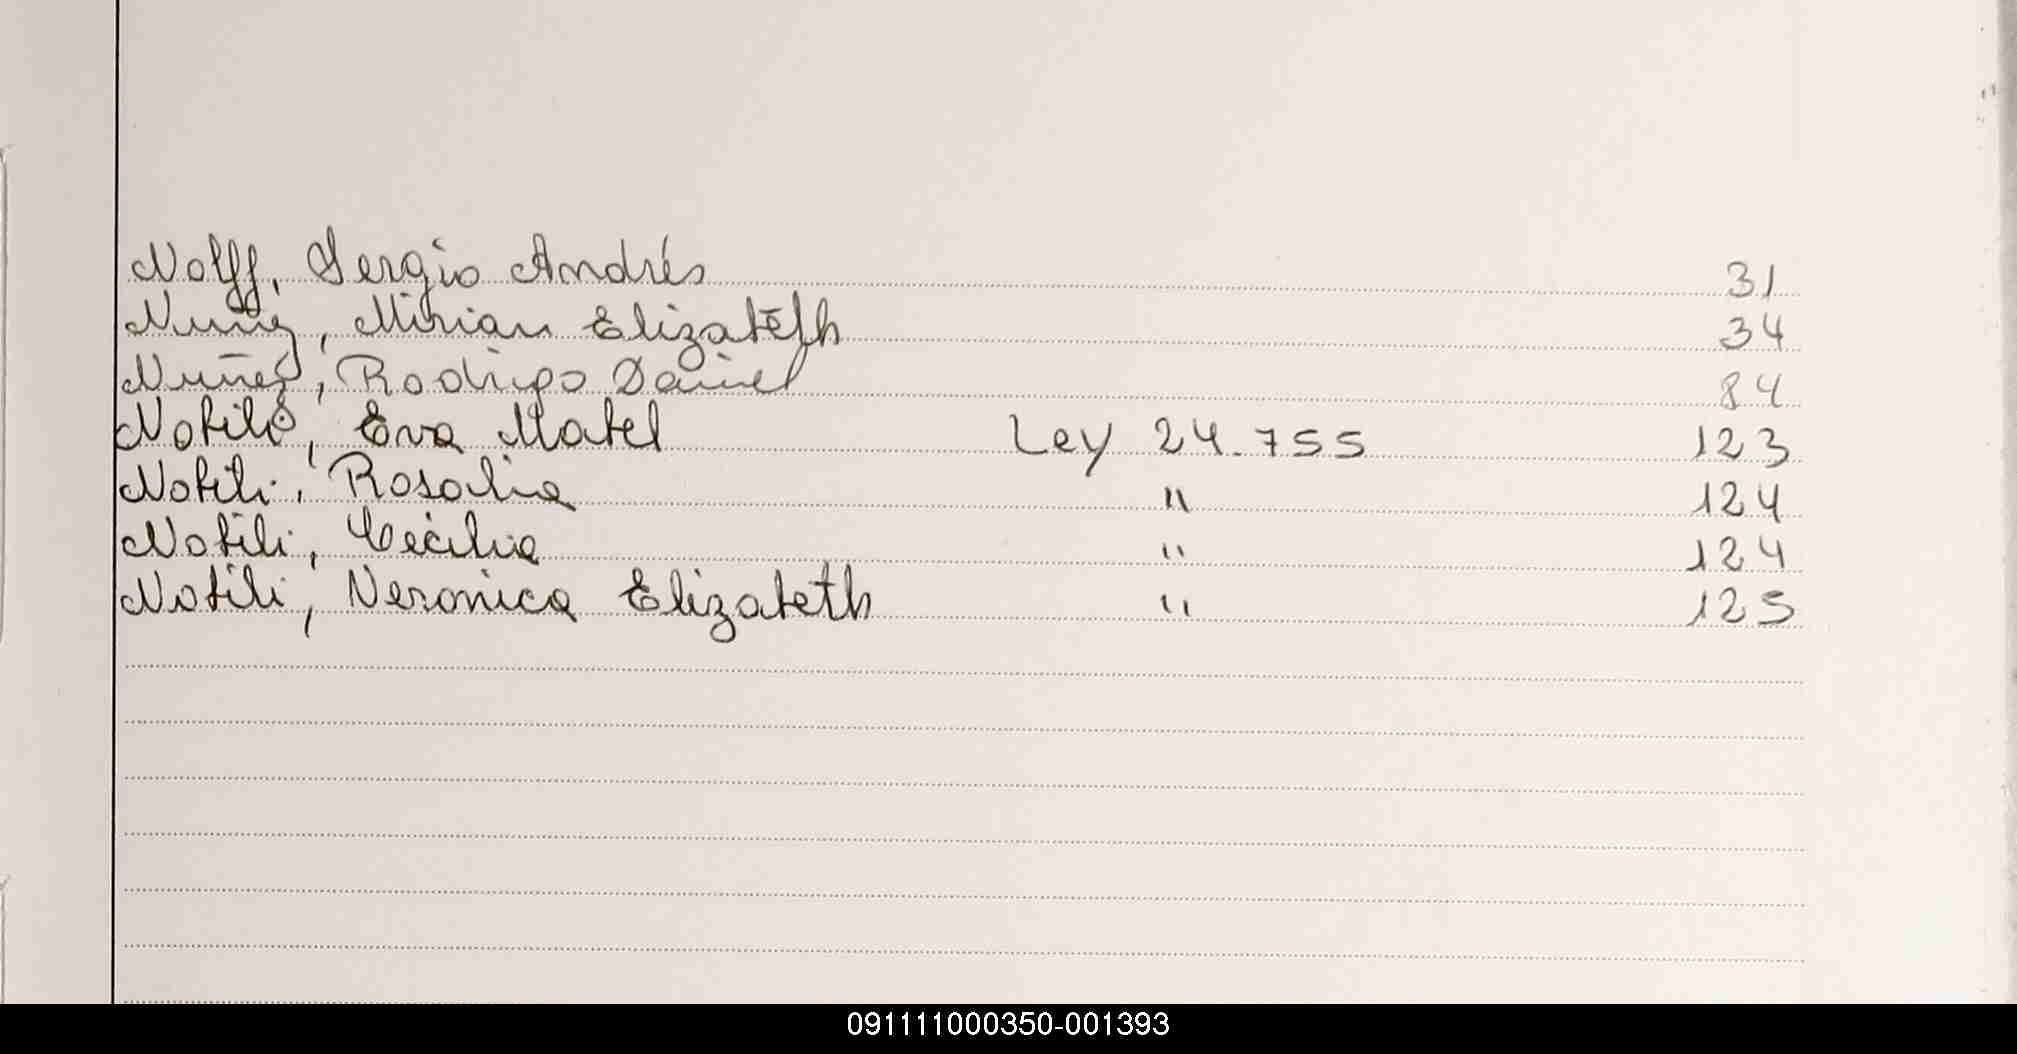 Nolff, Sergio Andrés 31
Nuñez, Mirian Elizabeth 34
Nuñez, Rodrigo Daniel 84
Nobile, Eva Mabel Ley 24.755 123
Nobili, Rosalia " 124
Nobili, Cecilia " 124
Nobili, Veronica Elizabeth " 125
091111000350-001393